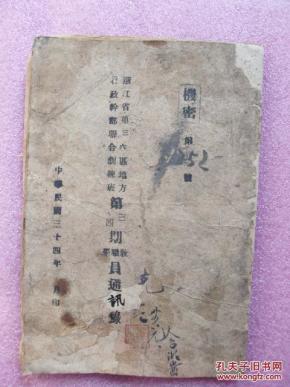 機密
第 252 號
浙江省第三六區地方
行政幹部聯合訓練班
第三四期教職學員通訊錄
中華民國三十四年 月印
孔夫子旧书网